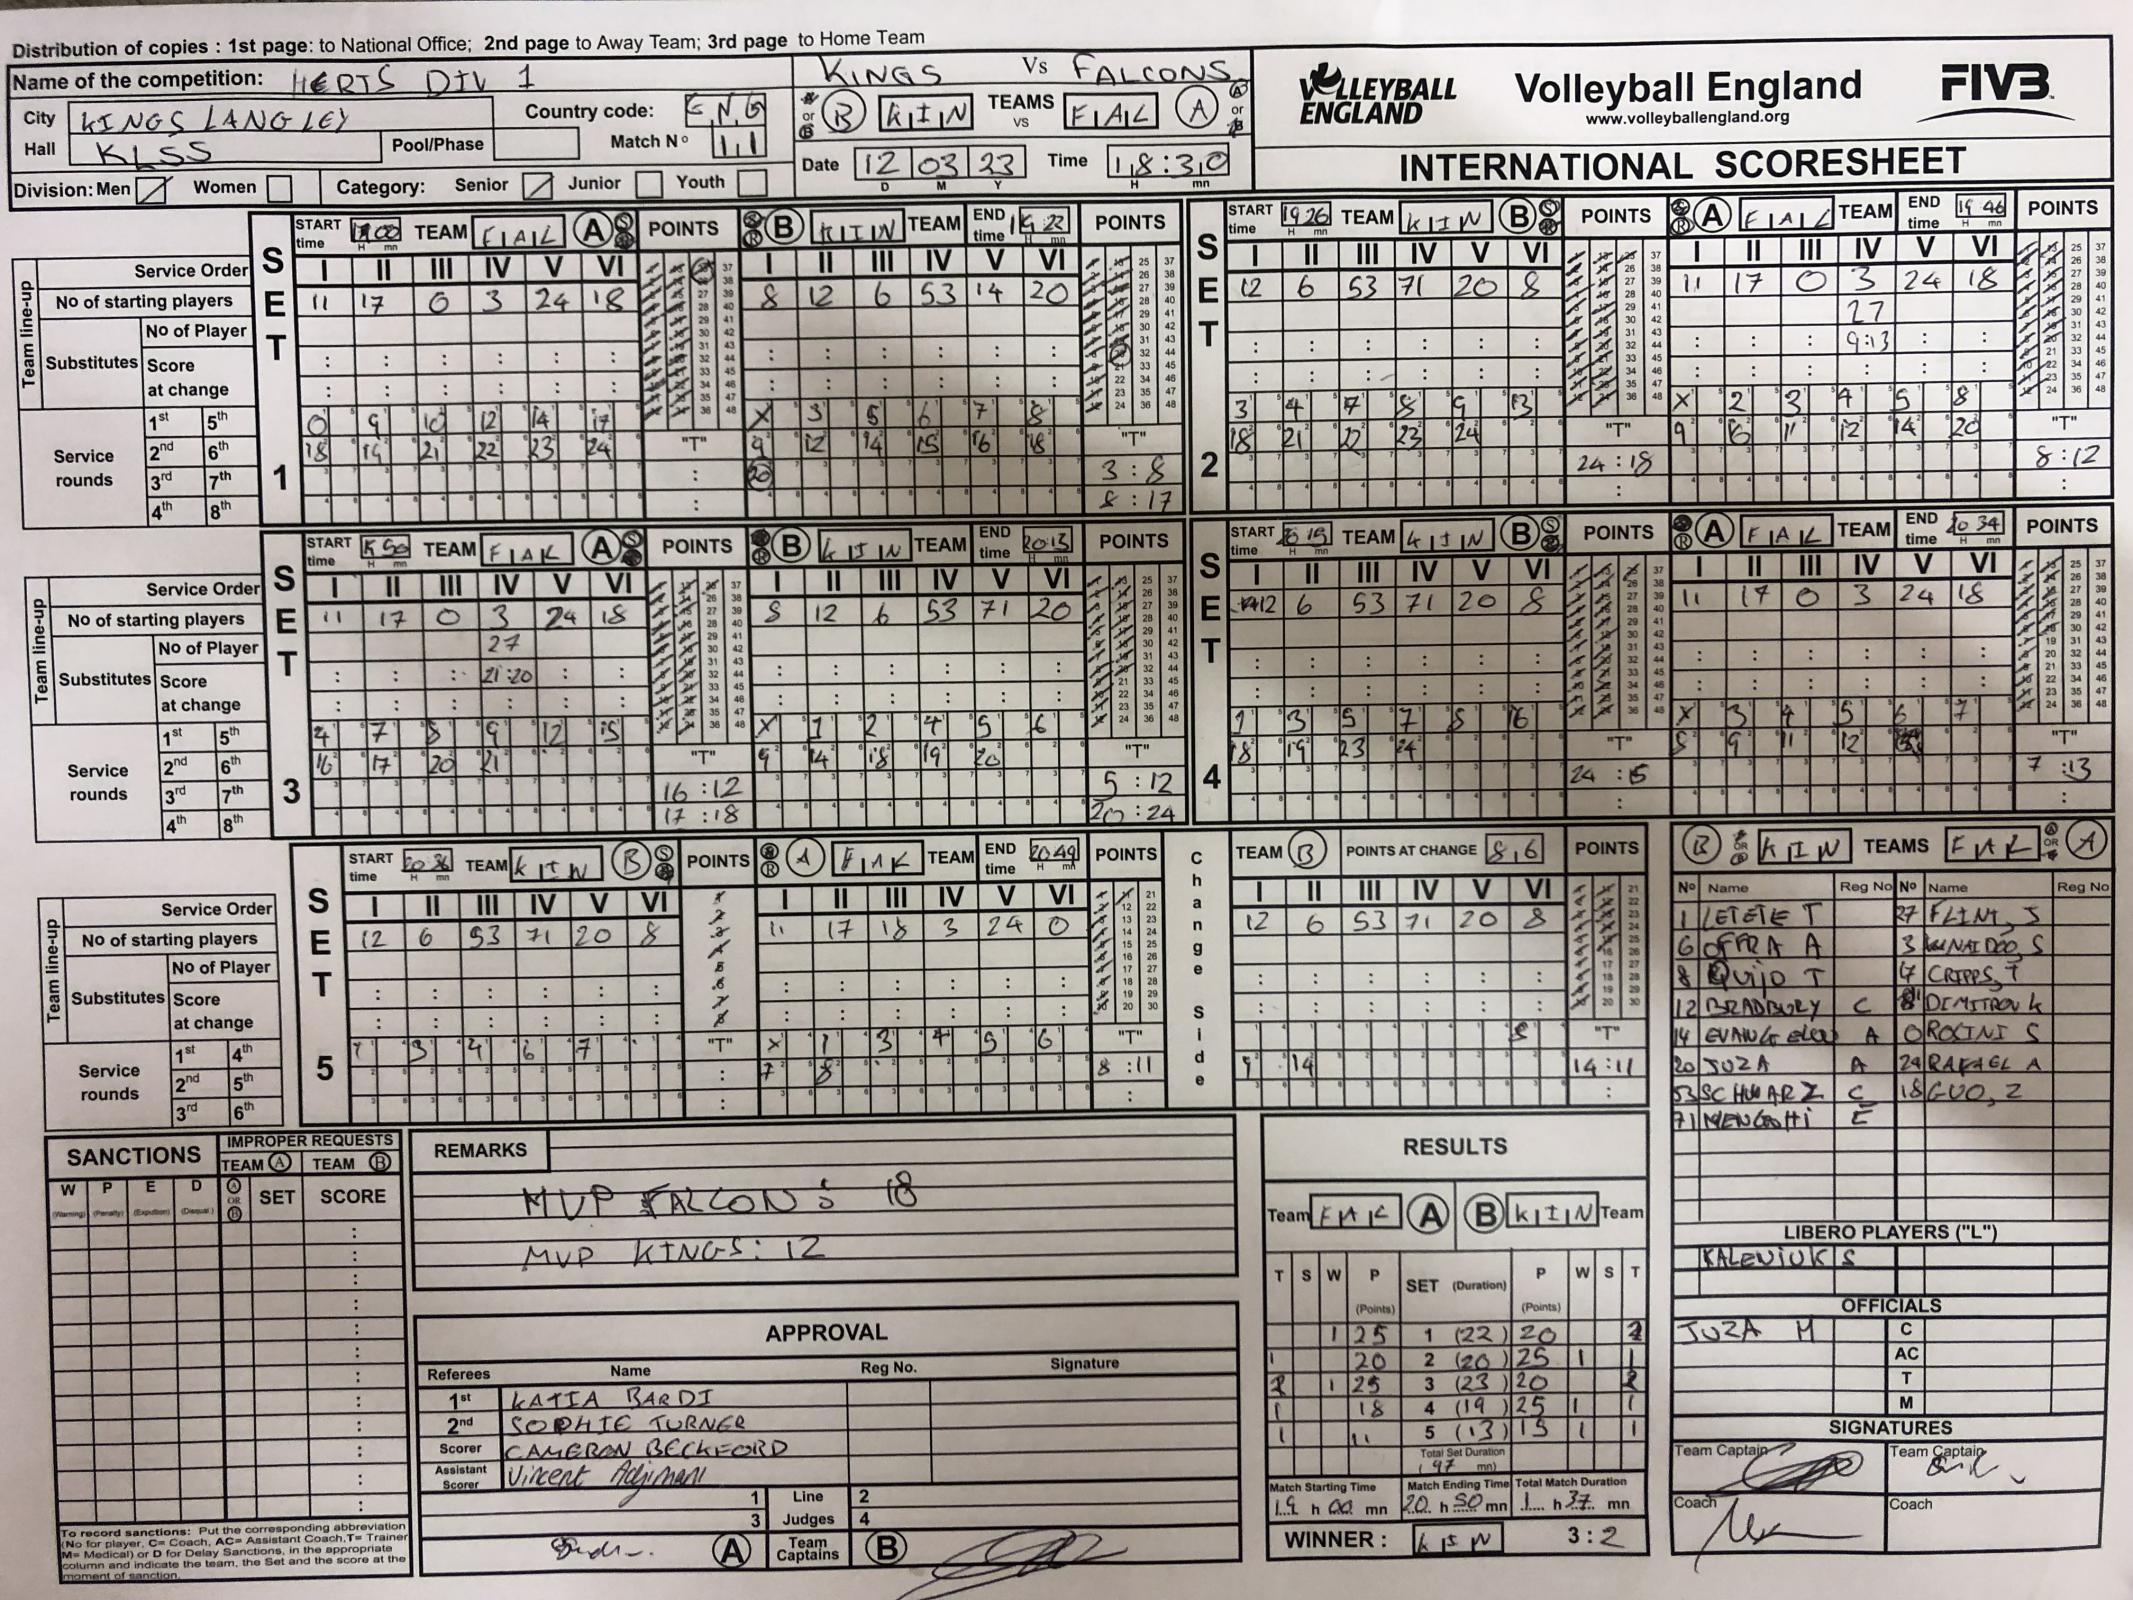 Distribution of copies : 1st page: to National Office; 2nd page to Away Team; 3rd page to Home Team
Name of the competition: HERTS DIV 1
KINGS Vs FALCONS
City KINGS LANGLEY
Country code: ENG
Hall KLSS
Pool/Phase
Match Nº 11
Division: Men Women
Category: Senior Junior Youth
B KIN TEAMS vs FAL A
Date 12 03 23 Time 18:30
D M Y H mn
VOLLEYBALL ENGLAND
Volleyball England
www.volleyballengland.org
FIVB
INTERNATIONAL SCORESHEET
SET 1
START time TEAM FAL A POINTS
B KIN TEAM END time 19 22 POINTS
Service Order I II III IV V VI
I II III IV V VI
No of starting players 11 17 0 3 24 18
8 12 6 53 14 20
Team line-up
Substitutes
No of Player
Score at change
Service rounds
1st 5th
2nd 6th
3rd 7th
4th 8th
0 9 10 12 14 17
18 19 21 22 23 24
X 3 5 6 7 8
9 12 14 15 16 18
20
"T"
"T"
3 : 8
8 : 17
SET 2
START time 19 26 TEAM KIN B POINTS
A FAL TEAM END time 19 46 POINTS
I II III IV V VI
I II III IV V VI
12 6 53 71 20 8
11 17 0 3 24 18
27
9:13
3 4 7 8 9 13
18 21 22 23 24
X 2 3 4 5 8
9 10 11 12 14 20
"T"
24 : 18
"T"
8 : 12
SET 3
START time TEAM FAL A POINTS
B KIN TEAM END time 20 13 POINTS
Service Order I II III IV V VI
I II III IV V VI
No of starting players 11 17 0 3 24 18
8 12 6 53 71 20
Team line-up
Substitutes
No of Player 27
Score at change 21:20
Service rounds
1st 5th
2nd 6th
3rd 7th
4th 8th
4 7 8 9 12 15
16 17 20 21
X 1 2 4 5 6
9 14 18 19 20
"T"
16 : 12
17 : 18
"T"
5 : 12
20 : 24
SET 4
START time 20 15 TEAM KIN B POINTS
A FAL TEAM END time 20 34 POINTS
I II III IV V VI
I II III IV V VI
12 6 53 71 20 8
11 17 0 3 24 18
1 3 5 7 8 16
18 19 23 24
X 3 4 5 6 7
8 9 11 12
"T"
24 : 15
"T"
7 : 13
SET 5
START time 20 36 TEAM KIN B POINTS
A FAL TEAM END time 20 49 POINTS
Service Order I II III IV V VI
I II III IV V VI
No of starting players 12 6 53 71 20 8
11 17 18 3 24 0
Team line-up
Substitutes
No of Player
Score at change
Service rounds
1st 4th
2nd 5th
3rd 6th
1 3 4 6 7
X 1 3 4 5 6
7 8
"T"
"T"
8 : 11
Change Side
TEAM B POINTS AT CHANGE 8,6 POINTS
I II III IV V VI
12 6 53 71 20 8
8
9 14
"T"
14 : 11
B KIN TEAMS FAL A
Nº Name Reg No Nº Name Reg No
1 LETETE T 27 FLINT, S
6 OFFRA A 3 NAIDOO, S
8 QUIJO T 17 CRIPPS, T
12 BRADBURY C 11 DIMITROV K
14 A 0 ROCINI S
20 JUZA A 24 RAFAEL A
53 SCHWARZ C 18 GUO, Z
71 E
LIBERO PLAYERS ("L")
KALENIUK S
OFFICIALS
JUZA M C
AC
T
M
SIGNATURES
Team Captain Team Captain
Coach Coach
SANCTIONS
IMPROPER REQUESTS
TEAM A TEAM B
W P E D A OR B SET SCORE
(Warning) (Penalty) (Expultion) (Disqual.)
To record sanctions: Put the corresponding abbreviation
(No for player, C= Coach, AC= Assistant Coach,T= Trainer
M= Medical) or D for Delay Sanctions, in the appropriate
column and indicate the team, the Set and the score at the
moment of sanction.
REMARKS
MVP FALCONS 18
MVP KINGS: 12
APPROVAL
Referees Name Reg No. Signature
1st KATIA BARDI
2nd SOPHIE TURNER
Scorer CAMERON BECKFORD
Assistant Scorer Vincent
1 Line 2
3 Judges 4
A Team Captains B
RESULTS
Team FAL A B KIN Team
T S W P (Points) SET (Duration) P (Points) W S T
1 25 1 (22) 20 2
1 20 2 (20) 25 1 1
2 1 25 3 (23) 20 2
1 18 4 (19) 25 1 1
1 11 5 (13) 15 1 1
Total Set Duration
(97 mn)
Match Starting Time Match Ending Time Total Match Duration
19 h 00 mn 20 h 50 mn 1 h 37 mn
WINNER : KIN 3 : 2